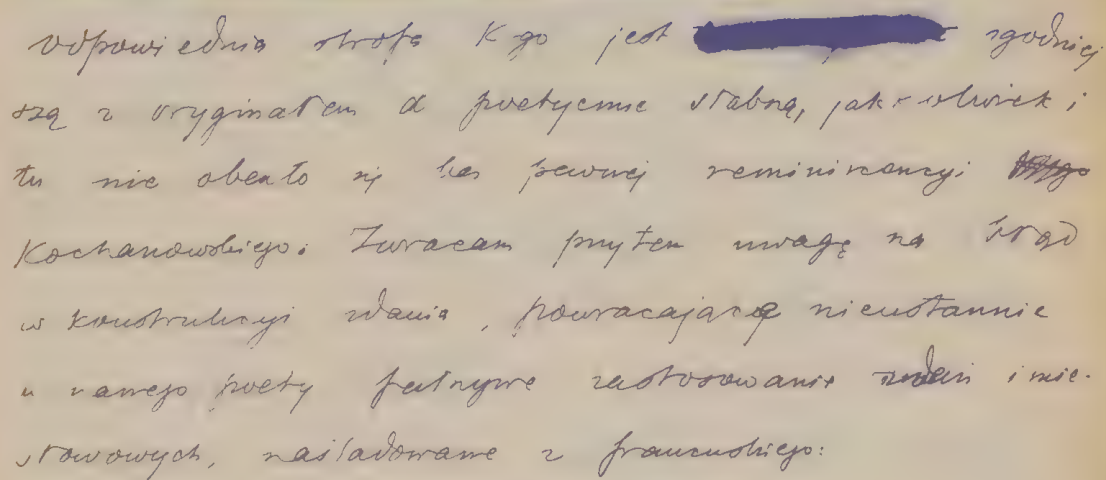 odpowiednia strofa K-go jest zgodniej
szą z oryginałem a poetycznie słabszą, jakkolwiek i
tu nie obeszło się bez pewnej reminiscencyi
Kochanowskiego. Zwracam przytem uwagę na błąd
w konstrukcyi zdania, powracające nieustannie
u naszego poety fałszywe zastosowanie zdań imie-
słowowych, naśladowane z francuskiego: